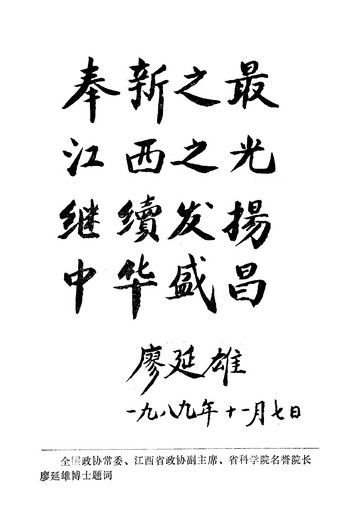 奉新之最
江西之光
继續发揚
中华盛昌
廖延雄
一九八九年十一月七日
全国政协常委、江西省政协副主席、省科学院名誉院长
廖延雄博士题词